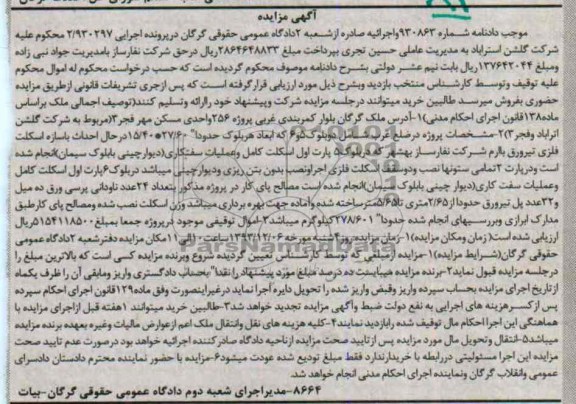 آگهی مزایده
موجب دادنامه شماره ۹۳۰۸۶۳واجرائیه صادره ازشعبه ۲دادگاه عمومی حقوقی گرگان درپرونده اجرایی ۲/۹۳۰۲۹۷ محکوم علیه
شرکت گلشن استرآباد به مدیریت عاملی حسین تجری بپرداخت مبلغ ۲۸۶۴۶۴۸۸۳۳ریال درحق شرکت نفارساز بامدیریت جواد نبی زاده
ومبلغ ۱۳۷۶۴۲۰۴۴ریال بابت نیم عشر دولتی بشرح دادنامه موصوف محکوم گردیده است که حسب درخواست محکوم له اموال محکوم
علیه توقیف وتوسط کارشناس منتخب بازدید وبشرح ذیل مورد ارزیابی قرارگرفته است که پس ازجری تشریفات قانونی ازطریق مزایده
حضوری بفروش میرسد طالبین خرید میتوانند درجلسه مزایده شرکت وپیشنهاد خود راارائه وتسلیم کنند(توصیف اجمالی ملک براساس
ماده۱۳۸قانون اجرای احکام مدنی)۱-آدرس ملک گرگان بلوار کمربندی غربی پروژه ۲۵۶واحدی مسکن مهر فجر۳(مربوط به شرکت گلشن
اتراباد وفجر۳)۲-مشخصات پروژه درضلع بلوک دو۶ که ابعاد هربلوک حدودا" ۲۷/۶۰*۱۵/۴۰درحال احداث باسازه اسکلت
فلزی تیرورق بالرم شرکت نفارساز پارت اول اسکلت کامل وعملیات سفتکاری(دیوارچینی بابلوک سیمان)انجام شده
است ودرپارت ۲تمامی ستونها نصب ودوسقف اسکلت فلزی اجراونصب بدون بتن ریزی ودیوارچینی میباشد دربلوک۶پارت اول اسکلت کامل
وعملیات سفت کاری(دیوار چینی بابلوک سیمان)انجام شده است مصالح پای کار در پروژه مذکور بتعداد ۲۴عدد ناودانی پرسی ورق ده میل
و۳۲عدد پل تیرورق حدودا از۲/۶۵متری تا۵/۶۵مترساخته شده وآماده جهت بهره برداری میباشد وزن اسکلت نصب شده ومصالح پای کارطبق
مدارک ابرازی وبررسیهای انجام شده حدودا" ۲۷۸/۶۰۱کیلوگرم میباشد۲-اموال توقیفی موجود درپروژه جمعا بمبلغ۵۱۵۴۱۱۸۵۰۰ریال
ارزیابی شده است(زمان ومکان مزایده)۱-زمان مزایده روز مورخه۱۳۹۳/۱۲/۰۶ساعت مکان مزایده دفترشعبه ۲دادگاه عمومی
حقوقی گرگان(شرایط مزایده)۱-مزایده ازمبلغی که توسط کارشناس تعیین گردیده شروع وبرنده مزایده کسی است که بالاترین مبلغ را
درجلسه مزایده قبول نماید۲-برنده مزایده میبایست ده درصد مبلغ مورد پیشنهاد را نقدا" بحساب دادگستری واریز ومابقی آن را ظرف یکماه
ازتاریخ اجرای مزایده بحساب سپرده واریز وقبض واریز شده را تحویل دایره اجرا نماید درغیراینصورت وفق ماده۱۲۹قانون اجرای احکام سپرده
پس ازکسرهزینه های اجرایی به نفع دولت ضبط وآگهی مزایده تجدید خواهد شد۳-طالبین خرید میتوانند ۱هفته قبل ازاجرای مزایده با
هماهنگی این اجرا احکام مال توقیف شده رابازدید نمایند۴-کلیه هزینه های نقل وانتقال ملک اعم ازعوارض مالیات وغیره بعهده برنده مزایده
میباشد۵-انتقال وتحویل مال مورد مزایده پس ازتایید صحت مزایده ازناحیه دادگاه صادرکننده اجرائیه خواهد بود درصورت عدم تایید صحت
مزایده این اجرا مسئولیتی دررابطه با خریدارندارد فقط مبلغ تودیع شده عودت میشود۶-مزایده با حضور نماینده محترم دادستان دادسرای
عمومی وانقلاب گرگان ونماینده اجرای احکام مدنی انجام خواهد شد.
۸۶۶۴-مدیراجرای شعبه دوم دادگاه عمومی حقوقی گرگان-بیات